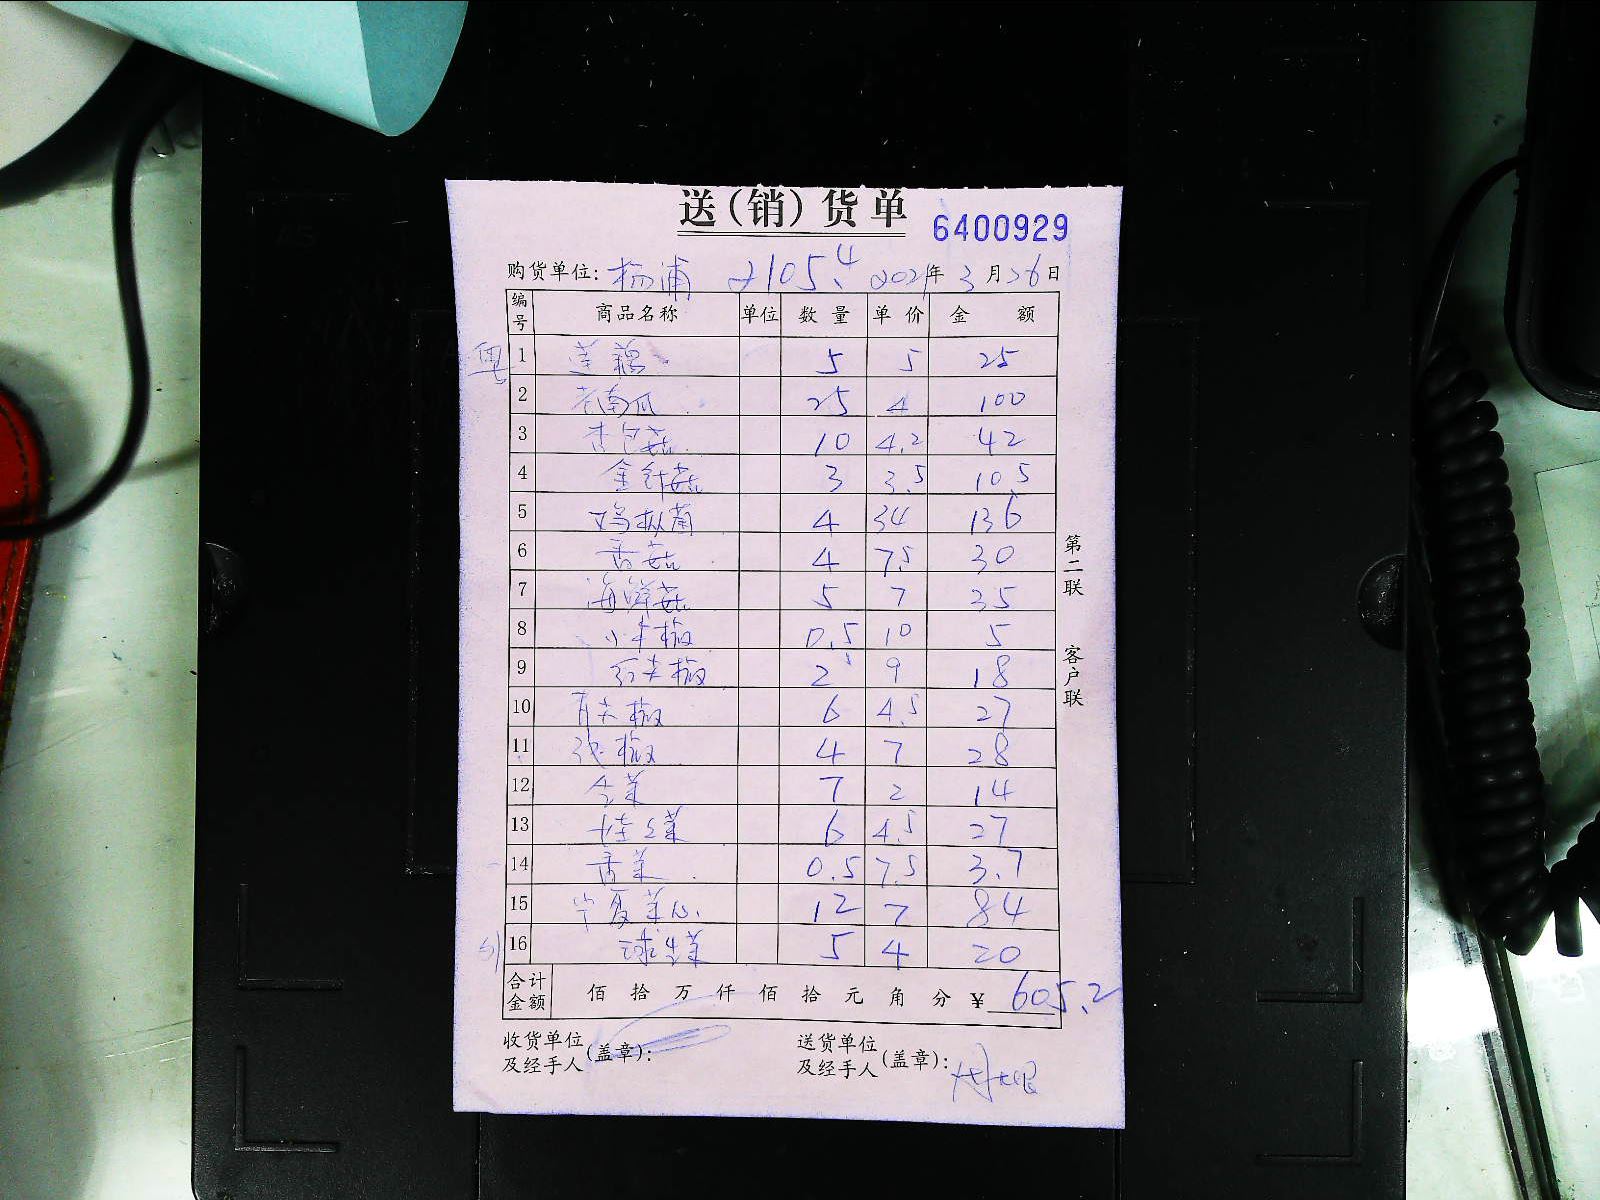 送(销)货单 6400929
购货单位: 杨浦 2105.4 2021年3月26日
编号 商品名称 单位 数量 单价 金额
1 莲藕 5 5 25
2 老南瓜 25 4 100
3 杏包菇 10 4.2 42
4 金针菇 3 3.5 10.5
5 鸡枞菌 4 34 136
6 香菇 4 7.5 30
7 海鲜菇 5 7 35
8 小米椒 0.5 10 5
9 红尖椒 2 9 18
10 青尖椒 6 4.5 27
11 线椒 4 7 28
12 7 2 14
13 娃娃菜 6 4.5 27
14 香菜 0.5 7.5 3.7
15 宁夏菜心 12 7 84
16 球生菜 5 4 20
合计金额 佰 拾 万 仟 佰 拾 元 角 分 ¥ 605.2
收货单位及经手人(盖章): 送货单位及经手人(盖章):
第二联 客户联